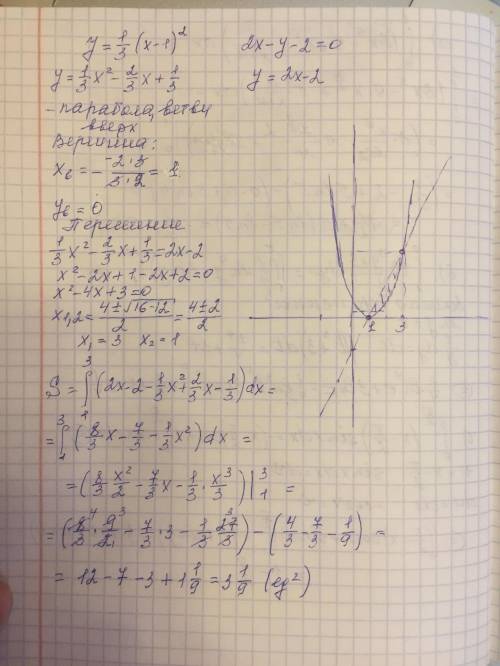 y = 1/3 (x-1)²  2x-y-2=0
y = 1/3 x² - 2/3 x + 1/3  y = 2x-2
- парабола, ветви
вверх
Вершина:
x₆ = - -2·3/3·2 = 1
y₆ = 0
Пересечение
1/3 x² - 2/3 x + 1/3 = 2x-2
x² - 2x + 1 - 2x + 2 = 0
x² - 4x + 3 = 0
x₁,₂ = 4±√16-12/2 = 4±2/2
x₁ = 3  x₂ = 1
1 3
S = ∫₁³ (2x - 2 - 1/3 x² + 2/3 x - 1/3) dx =
= ∫₁³ (8/3 x - 7/3 - 1/3 x²) dx =
= (8/3 x²/2 - 7/3 x - 1/3 · x³/3) |₁³ =
= (8⁴/3 · 9³/2 - 7/3 · 3 - 1/3 27³/3) - (4/3 - 7/3 - 1/9) =
= 12 - 7 - 3 + 1 1/9 = 3 1/9 (ед²)